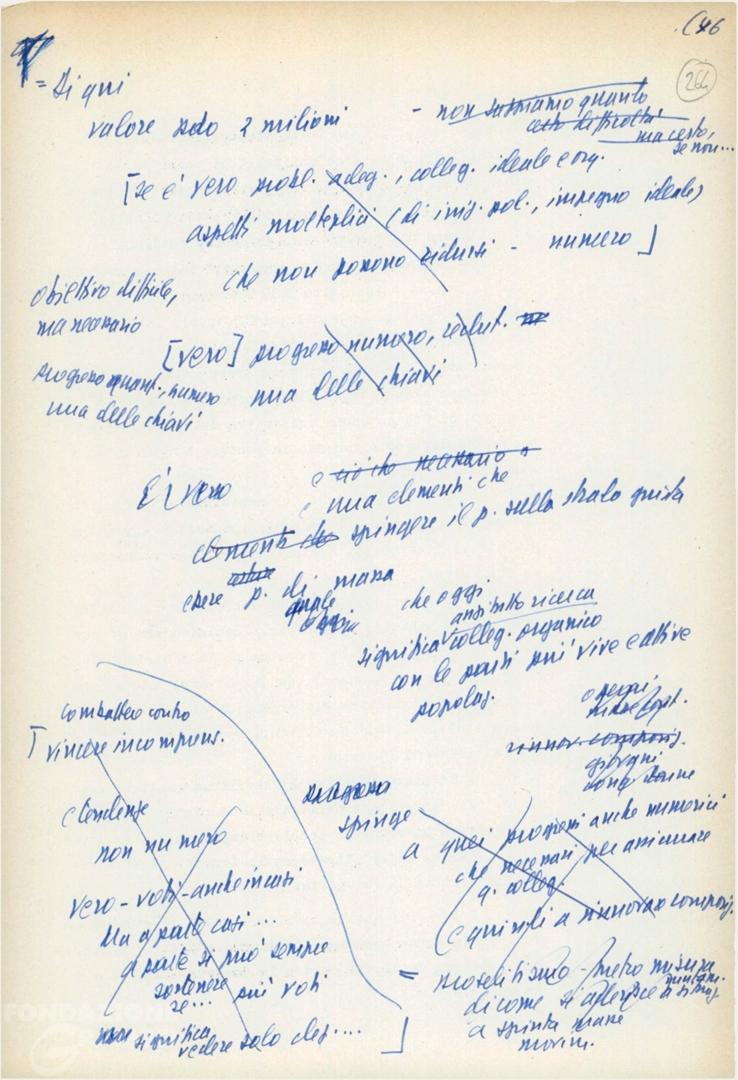 C46
264
= Di qui
valore solo 2 milioni
- non sappiamo quanto
certo difficoltà
ma certo,
se non...
[se è vero probl. adeg., colleg. ideale e org.
aspetti molteplici (di iniz. pol., impegno ideale)
che non possono ridursi - numero]
obiettivo difficile,
ma necessario
[vero] progresso numero, reclut.
una delle chiavi
progresso quant., numero
una delle chiavi
È vero
e ciò che necessario
e una elementi che
elementi che spingere il p. sulla strada giusta
essere p. di massa
quale
oggi
che oggi
anzitutto ricerca
significa colleg. organico
con le parti più vive e attive
popolaz.
operai
rinnov. composiz.
giovani
donne
combatteo contro
[vincere incomprens.
e tendenze
non numero
vero - voti - anche in casi
Ma a parte casi ...
a parte si può sempre
sostenere
se... più voti
non significa
vedere solo ....]
progresso
spinge
a quei progressi anche numerici
che necessari per assicurare
q. colleg.
e quindi a rinnovare composiz.
= proselitismo - metro misura
di come si aderisce
a spinta masse
movim.
FONDAZIONE
G